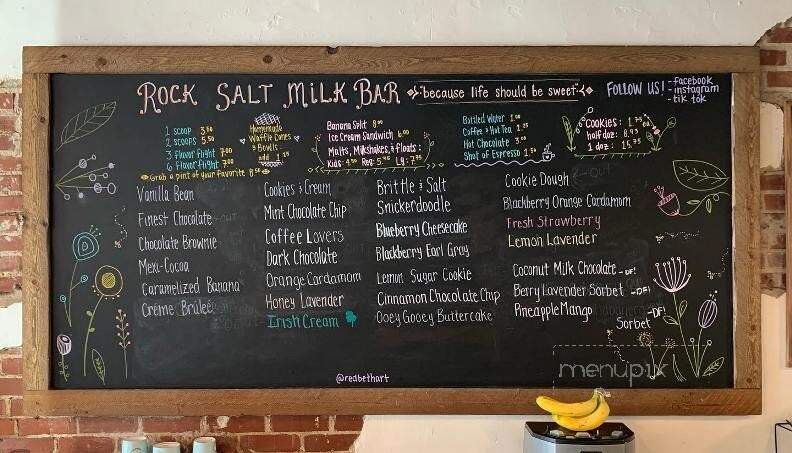 ROCK SALT MILK BAR
because life should be sweet
FOLLOW US!
- facebook
- instagram
- tik tok
1 scoop 3.50
2 scoops 5.50
3 flavor flight 7.00
6 flavor flight
Grab a pint of your favorite 8.50
Homemade
Waffle Cones
& Bowls
add 1.25
Banana Split 8.00
Ice Cream Sandwich 6.00
Malts, Milkshakes, & floats:
Kids: 4.50 Reg: 5.95 Lg: 7.95
Bottled Water 1.00
Coffee & Hot Tea 1.25
Hot Chocolate 3.00
Shot of Espresso 1.50
Cookies: 1.75 ea
half doz: 8.95
1 doz: 15.75
Vanilla Bean
Finest Chocolate
Chocolate Brownie
Mexi-Cocoa
Caramelized Banana
Crème Brûlée
Cookies & Cream
Mint Chocolate Chip
Coffee Lovers
Dark Chocolate
Orange Cardamom
Honey Lavender
Irish Cream
Brittle & Salt
Snickerdoodle
Blueberry Cheesecake
Blackberry Earl Gray
Lemon Sugar Cookie
Cinnamon Chocolate Chip
Ooey Gooey Buttercake
Cookie Dough
Blackberry Orange Cardamom
Fresh Strawberry
Lemon Lavender
Coconut Milk Chocolate -DF!
Berry Lavender Sorbet -DF!
Pineapple Mango
Sorbet -DF!
@redbethart
menupix